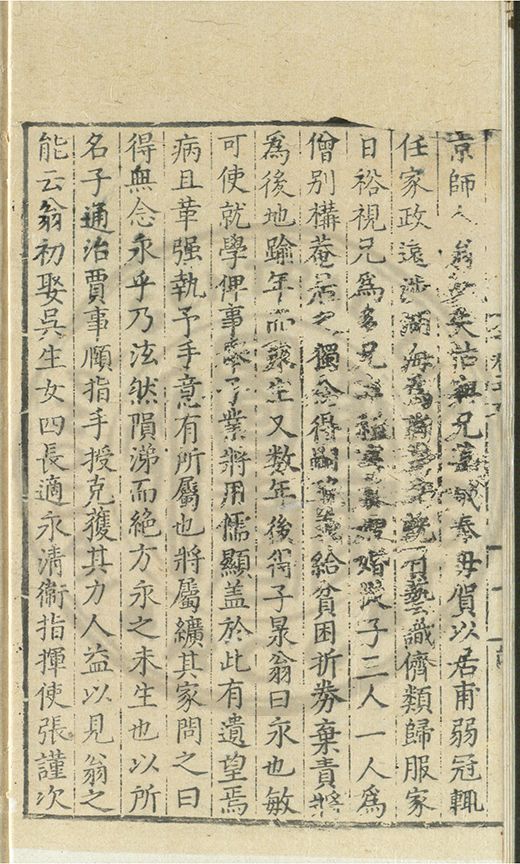 京師 翁 失怙與兄 奉毋賀以居甫弱冠輒
任家政遠 湖海 有藝識儕類歸服家
日裕視兄爲 兄 婚 子三人一人爲
僧别構菴居之獨念得嗣 給貧困折券棄責將
爲後地踰年而 生又数年後得子泉翁曰永也敏
可使就學俾事奉予業將用儒顯盖於此有遺望焉
病且革强執予手意有所屬也將屬纊其家問之曰
得無念永乎乃泫然隕涕而絶方永之未生也以所
名子通治賈事順指手授克蒦其力人益以見翁之
能云翁初娶吳生女四長適永清衛指揮使張謹次